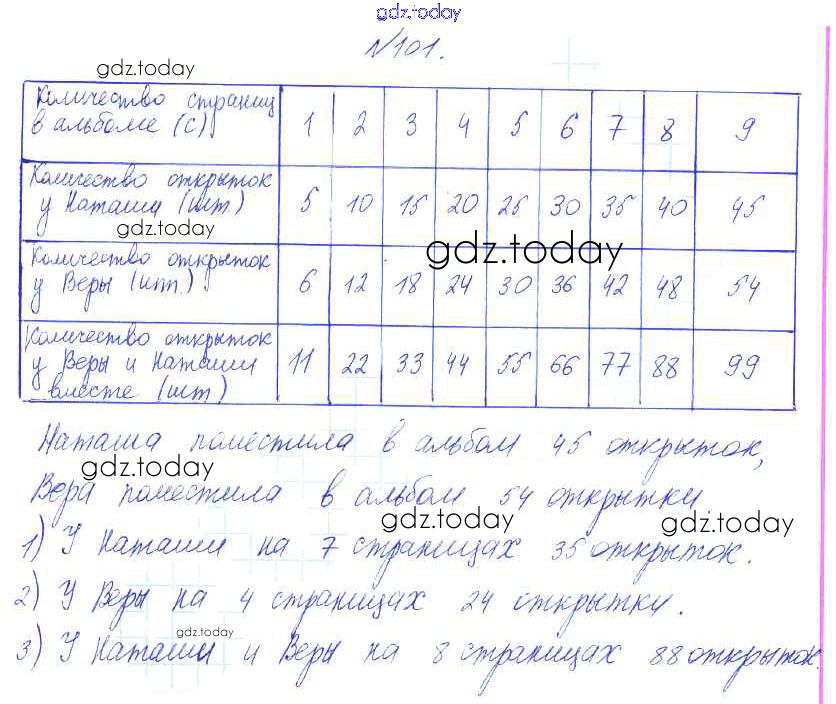 gdz.today
№101.
gdz.today
Количество страниц
в альбоме (с) 1 2 3 4 5 6 7 8 9
Количество открыток
у Наташи (шт.) 5 10 15 20 25 30 35 40 45
gdz.today
Количество открыток
gdz.today
у Веры (шт.) 6 12 18 24 30 36 42 48 54
Количество открыток
у Веры и Наташи 11 22 33 44 55 66 77 88 99
вместе (шт)
Наташа поместила в альбом 45 открыток,
gdz.today
Вера поместила в альбом 54 открытки
gdz.today gdz.today
1) У Наташи на 7 страницах 35 открыток.
2) У Веры на 4 страницах 24 открытки.
gdz.today
3) У Наташи и Веры на 8 страницах 88 открыток.